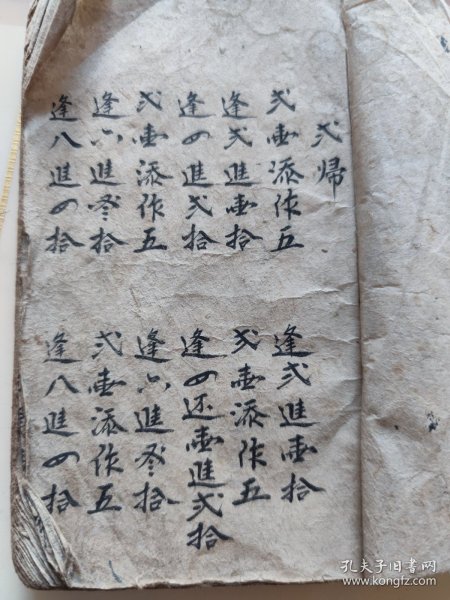 弍帰
弍壹添作五
逢弍進壹拾
逢四進弍拾
弍壹添作五
逢六進叁拾
逢八進四拾
逢弍進壹拾
弍壹添作五
逢四还壹進弍拾
逢六進叁拾
弍壹添作五
逢八進四拾
孔夫子旧书网
www.kongfz.com